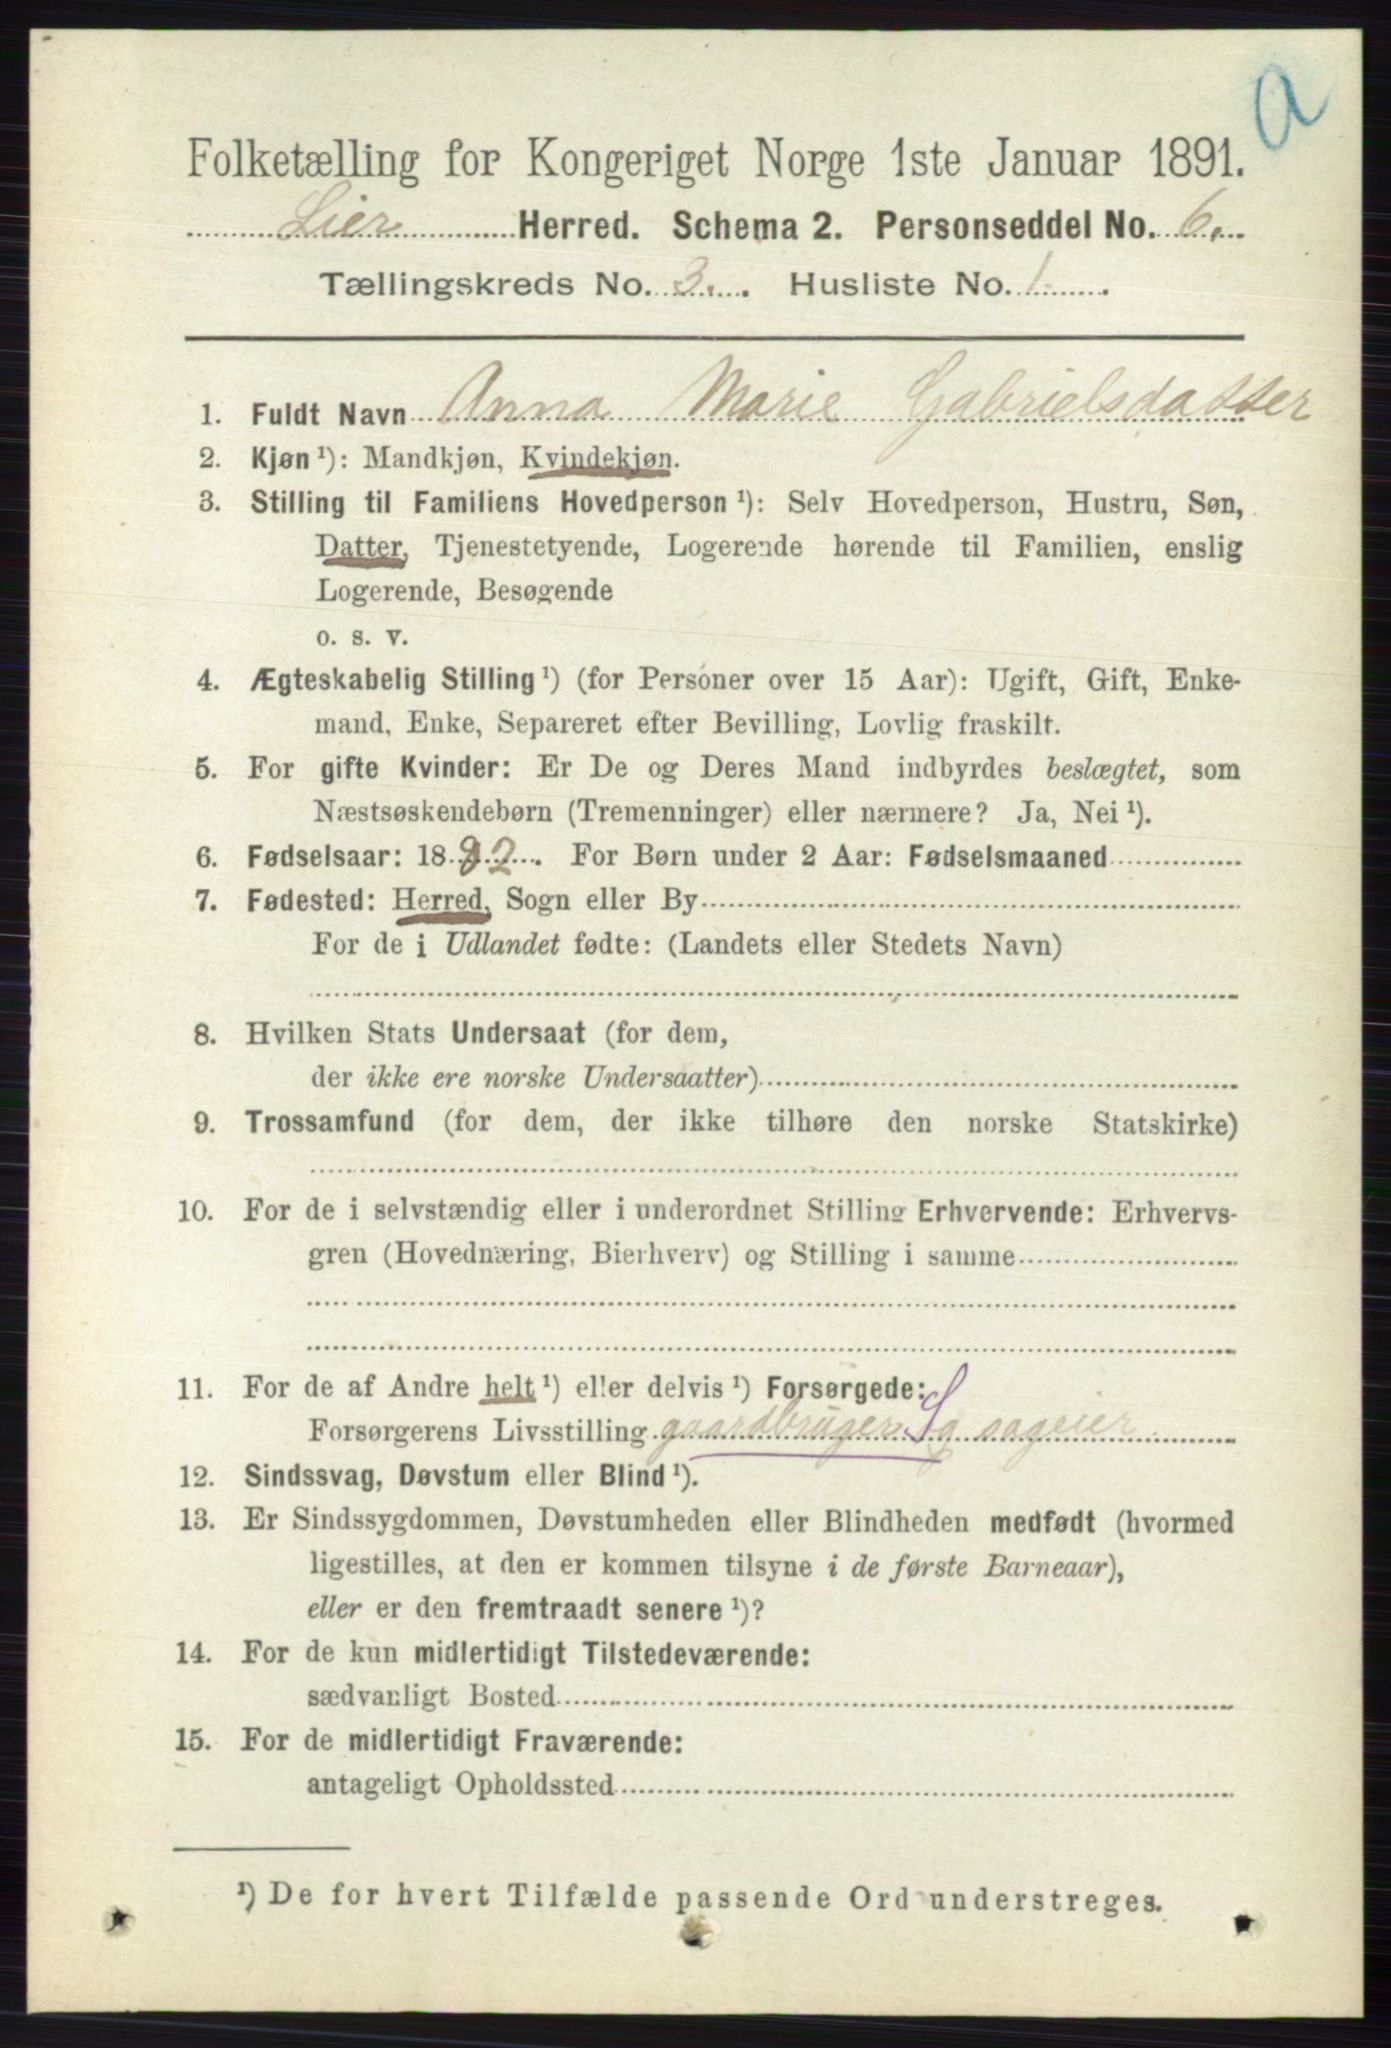 a
Folketælling for Kongeriget Norge 1ste Januar 1891.
Lier Herred. Schema 2. Personseddel No. 6.
Tællingskreds No. 3. Husliste No. 1
1. Fuldt Navn Anna Marie Gabrielsdatter
2. Kjøn ¹): Mandkjøn, Kvindekjøn.
3. Stilling til Familiens Hovedperson ¹): Selv Hovedperson, Hustru, Søn,
Datter, Tjenestetyende, Logerende hørende til Familien, enslig
Logerende, Besøgende
o. s. v.
4. Ægteskabelig Stilling ¹) (for Personer over 15 Aar): Ugift, Gift, Enke-
mand, Enke, Separeret efter Bevilling, Lovlig fraskilt.
5. For gifte Kvinder: Er De og Deres Mand indbyrdes beslægtet, som
Næstsøskendebørn (Tremenninger) eller nærmere? Ja, Nei ¹).
6. Fødselsaar: 1882. For Børn under 2 Aar: Fødselsmaaned
7. Fødested: Herred, Sogn eller By
For de i Udlandet fødte: (Landets eller Stedets Navn)
8. Hvilken Stats Undersaat (for dem,
der ikke ere norske Undersaatter)
9. Trossamfund (for dem, der ikke tilhøre den norske Statskirke)
10. For de i selvstændig eller i underordnet Stilling Erhvervende: Erhvervs-
gren (Hovednæring, Bierhverv) og Stilling i samme
11. For de af Andre helt ¹) eller delvis ¹) Forsørgede:
Forsørgerens Livsstilling gaardbruger og sageier
12. Sindssvag, Døvstum eller Blind ¹).
13. Er Sindssygdommen, Døvstumheden eller Blindheden medfødt (hvormed
ligestilles, at den er kommen tilsyne i de første Barneaar),
eller er den fremtraadt senere ¹)?
14. For de kun midlertidigt Tilstedeværende:
sædvanligt Bosted
15. For de midlertidigt Fraværende:
antageligt Opholdssted
¹) De for hvert Tilfælde passende Ord understreges.